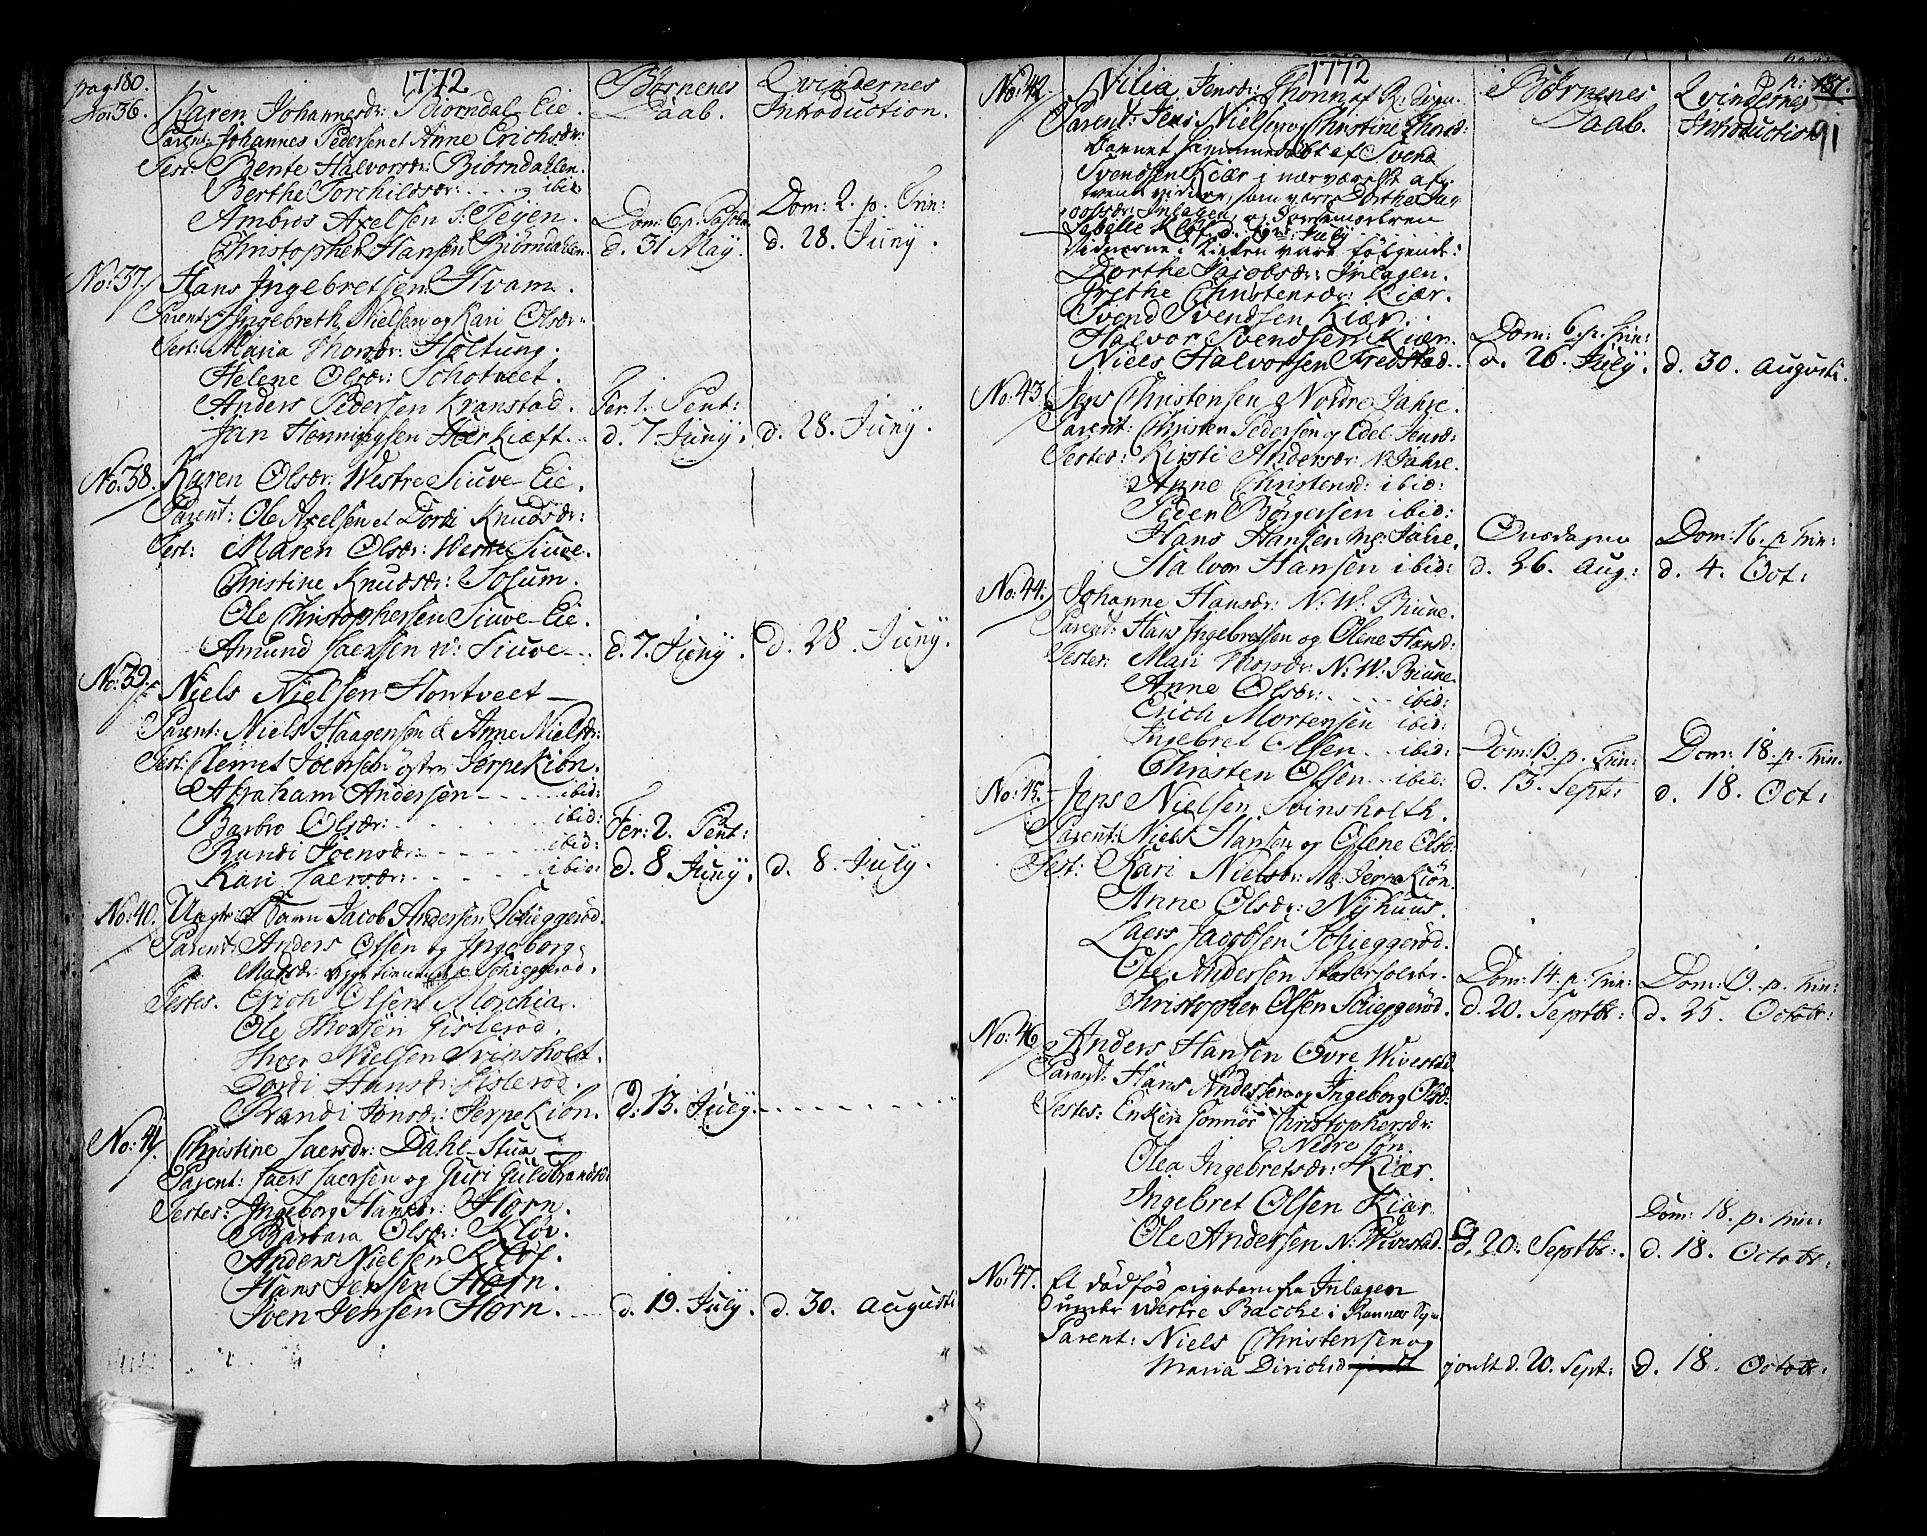 pag 180.
1772
Børnenes Daab.
Qvindernes Introduction.
No: 36. Karen Johannesdr: Biørndal Eie.
Parent: Johannes Pedersen et Anne Erichsdr:
Test: Bente Halvorsdr: Biørndahlen.
Berthe Torchildsdr: ibid:
Ambros Axelsen S. Teyen.
Christopher Hansen Biørndahlen.
Dom: 6. p. Pasch:
d. 31 May.
Dom: 2. p. Trin:
d. 28. Juny.
No: 37. Hans Ingebretsen Hvam.
Parent: Ingebreth Nielsen og Kari Olsdr:
Test: Maria Thorsdr: Holtung.
Helene Olsdr: Schotveet.
Anders Pedersen Kranstad.
Jan Henningsen
Fer: 1. Pent:
d. 7 Juny.
d. 28. Juny.
No: 38. Karen Olsdr: Westre Siuve Eie.
Parent: Ole Axelsen et Dordi Knudsdr:
Test: Maren Olsdr: Westre Siuve.
Christine Knudsdr: Solum.
Ole Christophersen Siuve-Eie.
Amund Laersen w: Siuve
d. 7. Juny.
d. 28 Juny.
No: 39. Niels Nielsen Hontveet
Parent: Niels Haagensen & Anne Nielsdr:
Test: Clemet Joensen østre Jerpekiøn.
Abraham Andersen ibid:
Barbro Olsdr: ibid:
Randi Joensdr: ibid:
Kari Laersdr: ibid:
Fer: 2. Pent:
d. 8 Juny.
d. 8. July.
No: 40. Uægte Barn Jacob Andersen Schieggerød.
Parent: Anders Olsen og Ingeborg
Madsdr: Schieggerød.
Testes. Erich Olsen Morchia.
Ole Thorsen Gislerød.
Thoer Nielsen Svinsholt.
Dordi Hansdr: Gislerød.
Randi Jonsdr: Jerpekiøn.
d. 13. July.
No: 41. Christine Laersdr: Dahl-Stua
Parent: Laers Laersen og Guri Guldbrandsd:
Testes: Ingeborg Hansdr: Horn.
Barbara Olsdr: Kløv.
Anders Nielsen Kløf.
Hans Jensen Horn.
Joen Jensen Horn.
d. 19. July.
d. 30. Augusti
1772
Børnenes Daab.
Qvindernes Introduction
p: 181.
91
No: 42. Nilia Jensdr:
Parent: Jens Nielsen og Christine Thorsd:
Barnet hiemmedøbt af Svend
Svendsen Kiær i nærværelse af
tvende vidner, som vare Dorthe Ja-
cobsdr: Inlagen, og Jordemoderen
Sebille Kløf d. July
Vidnerne i Kirken vare følgende:
Dorthe Jacobsdr: Inlagen.
Grethe Christensdr: Kiær.
Svend Svendsen Kiær.
Halvor Svendsen Kiær.
Niels Halvorsen Fredstad.
Dom: 6. p. Trin:
d. 26. July.
d. 30. Augusti.
No: 43. Jens Christensen Nordre Jahre.
Parent: Christen Pedersen og Edel Jensdr:
Testes: Kirsti Andersdr: N: Jahre.
Anne Christensd: ibid:
Peder Børgersen ibid:
Hans Hansen Jahre.
Halvor Hansen ibid:
Onsdagen
d. 26. Aug:
Dom: 16. p. Trin:
d. 4. Oct:
No: 44. Johanne Hansdr: N: W: Briune.
Parent: Hans Ingebretsen og Olene Hansd:
Testes: Mari Thorsdr: N: W: Briune.
Anne Olsdr: ibid:
Erich Mortensen ibid:
Ingebret Olsen ibid:
Christen Olsen ibid:
Dom: 13. p. Trin:
d. 13. Sept:
Dom: 18. p. Trin:
d. 18. Oct:
No: 45. Jens Nielsen Svinsholth.
Parent: Niels Hansen og Olene Olsd:
Test: Kari Nielsdr: M: Jerpekiøn.
Anne Olsdr: Nyhuus.
Laers Jacobsen Schieggerød.
Ole Andersen
Christopher Olsen Schieggerød.
Dom: 14. p. Trin:
d. 20. Septbr:
Dom: 19. p. Trin:
d. 25. Octobr:
No: 46. Anders Hansen Øvre Wivestad.
Parent: Hans Andersen og Ingeborg Olsd:
Testes: Enken Gonnør Christophersdr:
Nedre Søn.
Olea Ingebretsdr: Kiær.
Ingebret Olsen Kiær
Ole Andersen N: Wivestad.
d. 20. Septbr:
Dom: 18. p. Trin:
d. 18. Octobr:
No: 47. Et dødfød pigebarn fra Inlagen
under Westre Bacche i Ramnes Sogn
Parent: Niels Christensen og
Maria Dirichsd
jordt d. 20. Sept:
d. 18. Octobr: